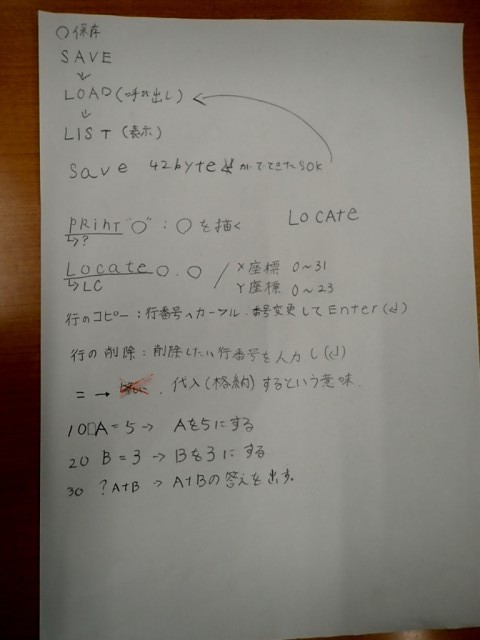 ○保存
SAVE
↓
LOAD(呼び出し)
↓
LIST(表示)
Save 42byte がでてきたらOK
PRINT "○" : ○を描く LOCATE
↳?
Locate ○,○ / X座標 0~31
↳LC Y座標 0~23
行のコピー:行番号へカーソル.番号変更してEnter(↲)
行の削除:削除したい行番号を入力し(↲)
= → . 代入(格納)するという意味.
10□A=5 → Aを5にする
20 B=3 → Bを3にする
30 ?A+B → A+Bの答えを出す。